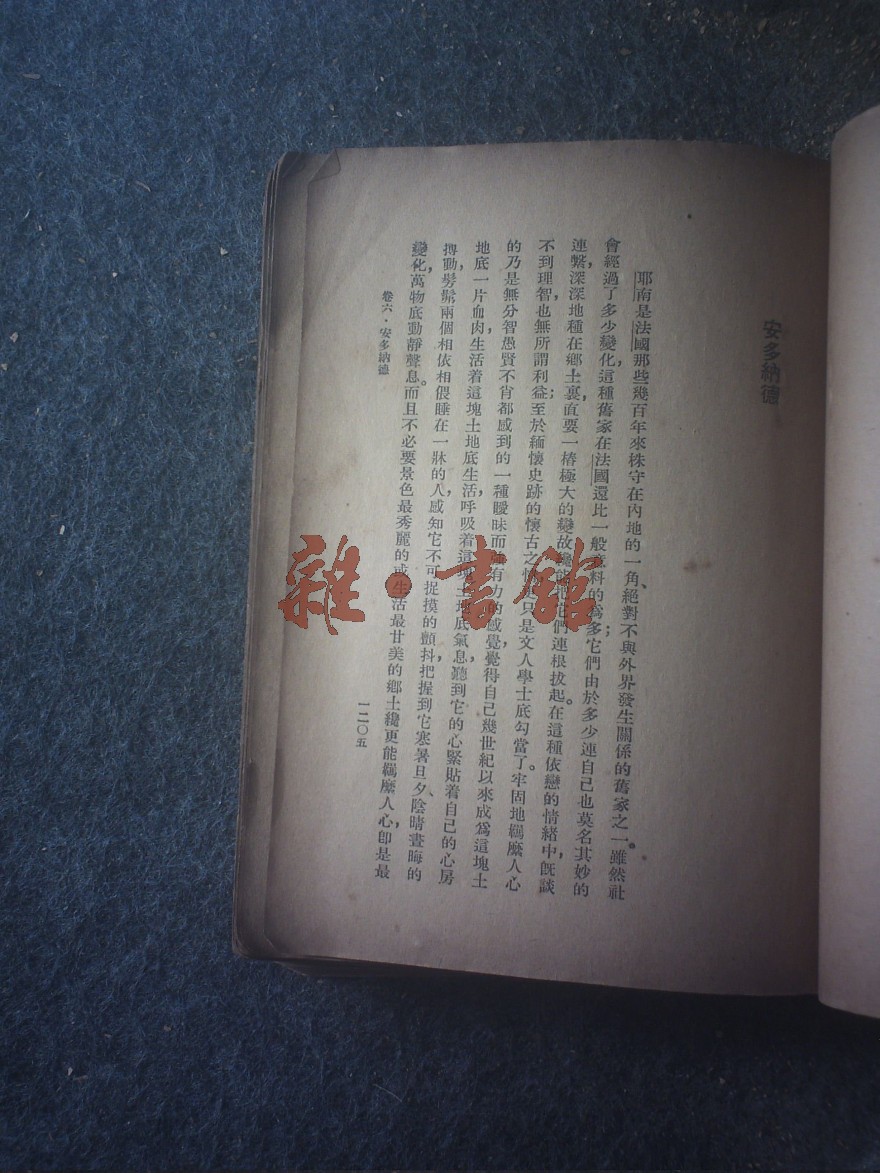 安多納德
耶南是法國那些幾百年來株守在內地的一角、絕對不與外界發生關係的舊家之一。雖然社
會經過了多少變化，這種舊家在法國還比一般意料的為多；它們由於多少連自己也莫名其妙的
連繫，深深地種在鄉土裏，直要一樁極大的變故纔能把它們連根拔起。在這種依戀的情緒中，旣談
不到理智，也無所謂利益；至於緬懷史跡的懷古之情，那只是文人學士底勾當了。牢固地羈縻人心
的乃是無分智愚賢不肖都感到的一種曖昧而強有力的感覺，覺得自己幾世紀以來成為這塊土
地底一片血肉，生活着這塊土地底生活，呼吸着這塊土地底氣息，聽到它的心緊貼着自己的心房
搏動，髣髴兩個相依相偎睡在一牀的人，感知它不可捉摸的顫抖，把握到它寒暑旦夕、陰晴晝晦的
變化，萬物底動靜聲息。而且不必要景色最秀麗的或生活最甘美的鄉土纔更能羈縻人心，卽是最
卷六·安多納德
一二〇五
雜·書館